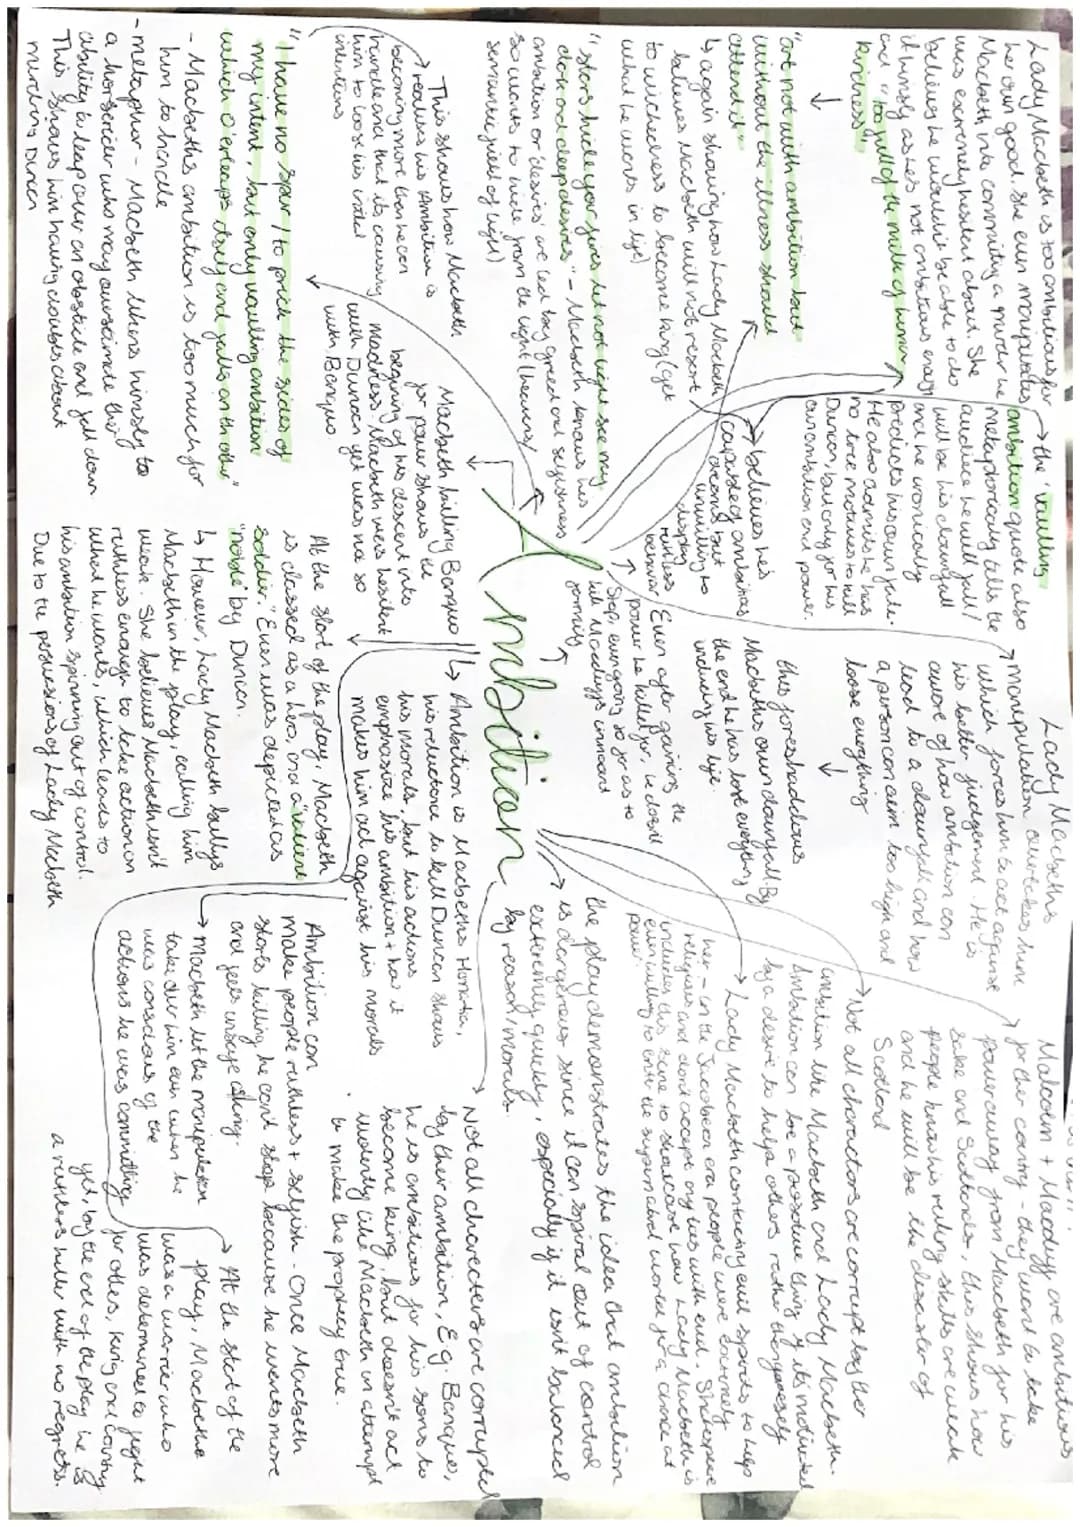 Lady Macbeth is too ambitious for
her own good. She even manipulates
Macbeth into committing a murder he
was extremely hesitant about. She
believes he wouldn't be able to do
it himself as he's not ambitious enough
and "too full of th' milk of human
kindness"
"art not with ambition but
without the illness should
attend it"
↳ again showing how Lady Macbeth
believes Macbeth will not resort
to wickedness to become king (get
what he wants in life)
"stars hide your fires let not light see my
dark and deep desires" - Macbeth knows his
ambition or 'desires' are led by greed and selfishness
so wants to hide from the light (heavens/
semantic field of light)
This shows how Macbeth
realises his Ambition is
becoming more than he can
handle and that its causing
him to loose his initial
intentions
"I have no spur / to prick the sides of
my intent, but only vaulting ambition
which o'erleaps itself and falls on th'other"
- Macbeths ambition is too much for
him to handle
- metaphor - Macbeth likens himself to
a horserider who may overestimate their
ability to leap over an obstacle and fall down
This shows him having doubts about
murdering Duncan
→ the 'vaulting
ambition' quote also
metaphorically tells the
audience he will fall /
will be his downfall
and he ironically
predicts his own fate.
He also admits he has
no true motives to kill
Duncan, but only for his
own ambition and power.
→ believes he's
capable of ambitious
dreams, but
unwilling to
display
ruthless
behaviour
Ambition
Macbeth killing Banquo
for power shows the
beginning of his descent into
madness. Macbeth was hesitant
with Duncan yet was not so
with Banquo
At the start of the play, Macbeth
is classed as a hero, and a "valiant
soldier." Even was depicted as
"noble" by Duncan.
↳ However, Lady Macbeth bullys
Macbeth in the play, calling him
weak. She believes Macbeth isn't
ruthless enough to take action on
what he wants, which leads to
his ambition spinning out of control.
Due to the persuasions of Lady Macbeth
Lady Macbeths
manipulation overtakes him
which forces him to act against
his better judgement. He is
aware of how ambition can
lead to a downfall and how
a person can aim too high and
loose everything
this foreshadows
Macbeths own downfall. By
the end he has lost everything
including his life
Even after gaining the
power he killed for, he doesn't
stop, even going so far as to
kill Macduffs innocent
family
↳ Ambition is Macbeths Hamartia,
his reluctance to kill Duncan shows
his morals, but his actions
emphasize his ambition + how it
makes him act against his morals
the play demonstrates the idea that ambition
is dangerous since it can spiral out of control
extremely quickly, especially if it isn't balanced
by reason/morals.
Ambition can
make people ruthless + selfish - Once Macbeth
starts killing, he can't stop because he wants more
and feels unsafe
→ Macbeth let the manipulation
take over him even when he
was conscious of the
actions he was committing
Malcolm + Macduff are ambitious
for their country - they want to take
power away from Macbeth for his
sake and Scotlands, this shows how
people know his ruling skills are weak
and he will be the disaster of
Scotland
→ Not all characters are corrupt by their
ambition like Macbeth and Lady Macbeth.
Ambition can be a positive thing if its motivated
by a desire to help others rather than yourself
→ Lady Macbeth contacting evil spirits to help
her - in the Jacobean era people were extremely
religious and didn't accept any ties with evil. Shakespeare
includes this scene to showcase how Lady Macbeth is
even willing to enter the supernatural world for a chance at
power.
Not all characters are corrupted
by their ambition, E.g. Banquo,
he is ambitious for his sons to
become king, but doesn't act
violently like Macbeth in attempt
to make the prophecy true.
→ At the start of the
play, Macbeth
was a warrior who
was determined to fight
for others, king and country
yet, by the end of the play he is
a ruthless killer with no regrets.